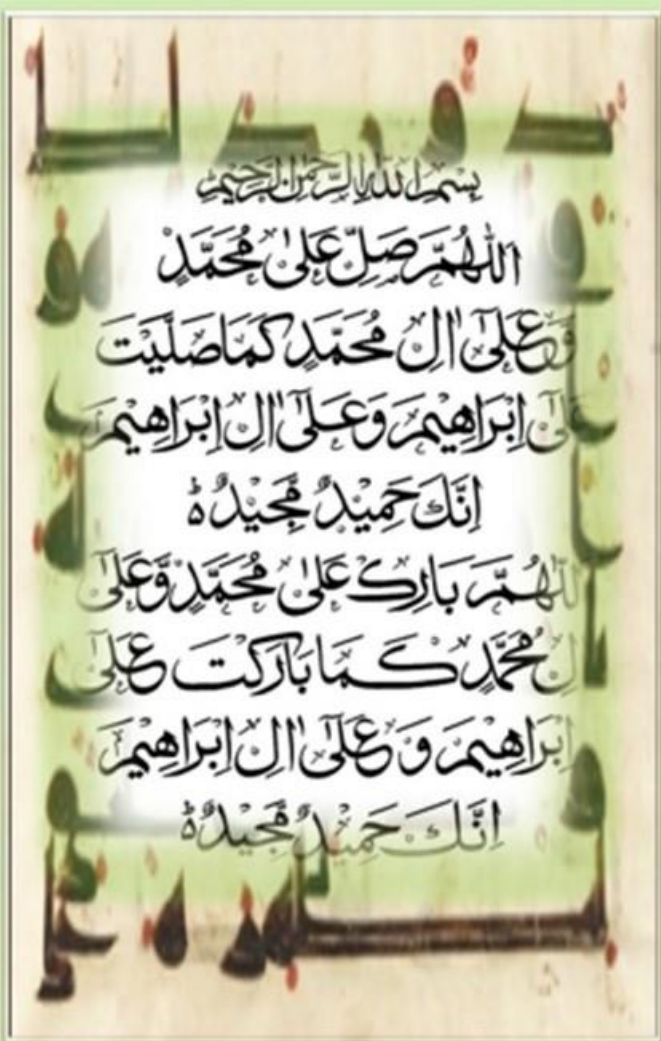 بسم الله الرحمن الرحیم
اَللّٰهُمَّ صَلِّ عَلٰی مُحَمَّدٍ
وَّعَلٰۤی اٰلِ مُحَمَّدٍ کَمَا صَلَّیْتَ
عَلٰۤی اِبْرَاهِیْمَ وَعَلٰۤی اٰلِ اِبْرَاهِیْمَ
اِنَّكَ حَمِیْدٌ مَّجِیْدٌ ؕ
اللّٰهُمَّ بَارِكْ عَلٰی مُحَمَّدٍ وَّعَلٰۤی
لِ مُحَمَّدٍ کَمَا بَارَکْتَ عَلٰۤی
اِبْرَاهِیْمَ وَ عَلٰۤی اٰلِ اِبْرَاهِیْمَ
اِنَّكَ حَمِیْدٌ مَّجِیْدٌ ؕ